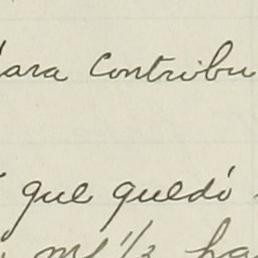 para contribu
que quedó
m/ 1/2 ha